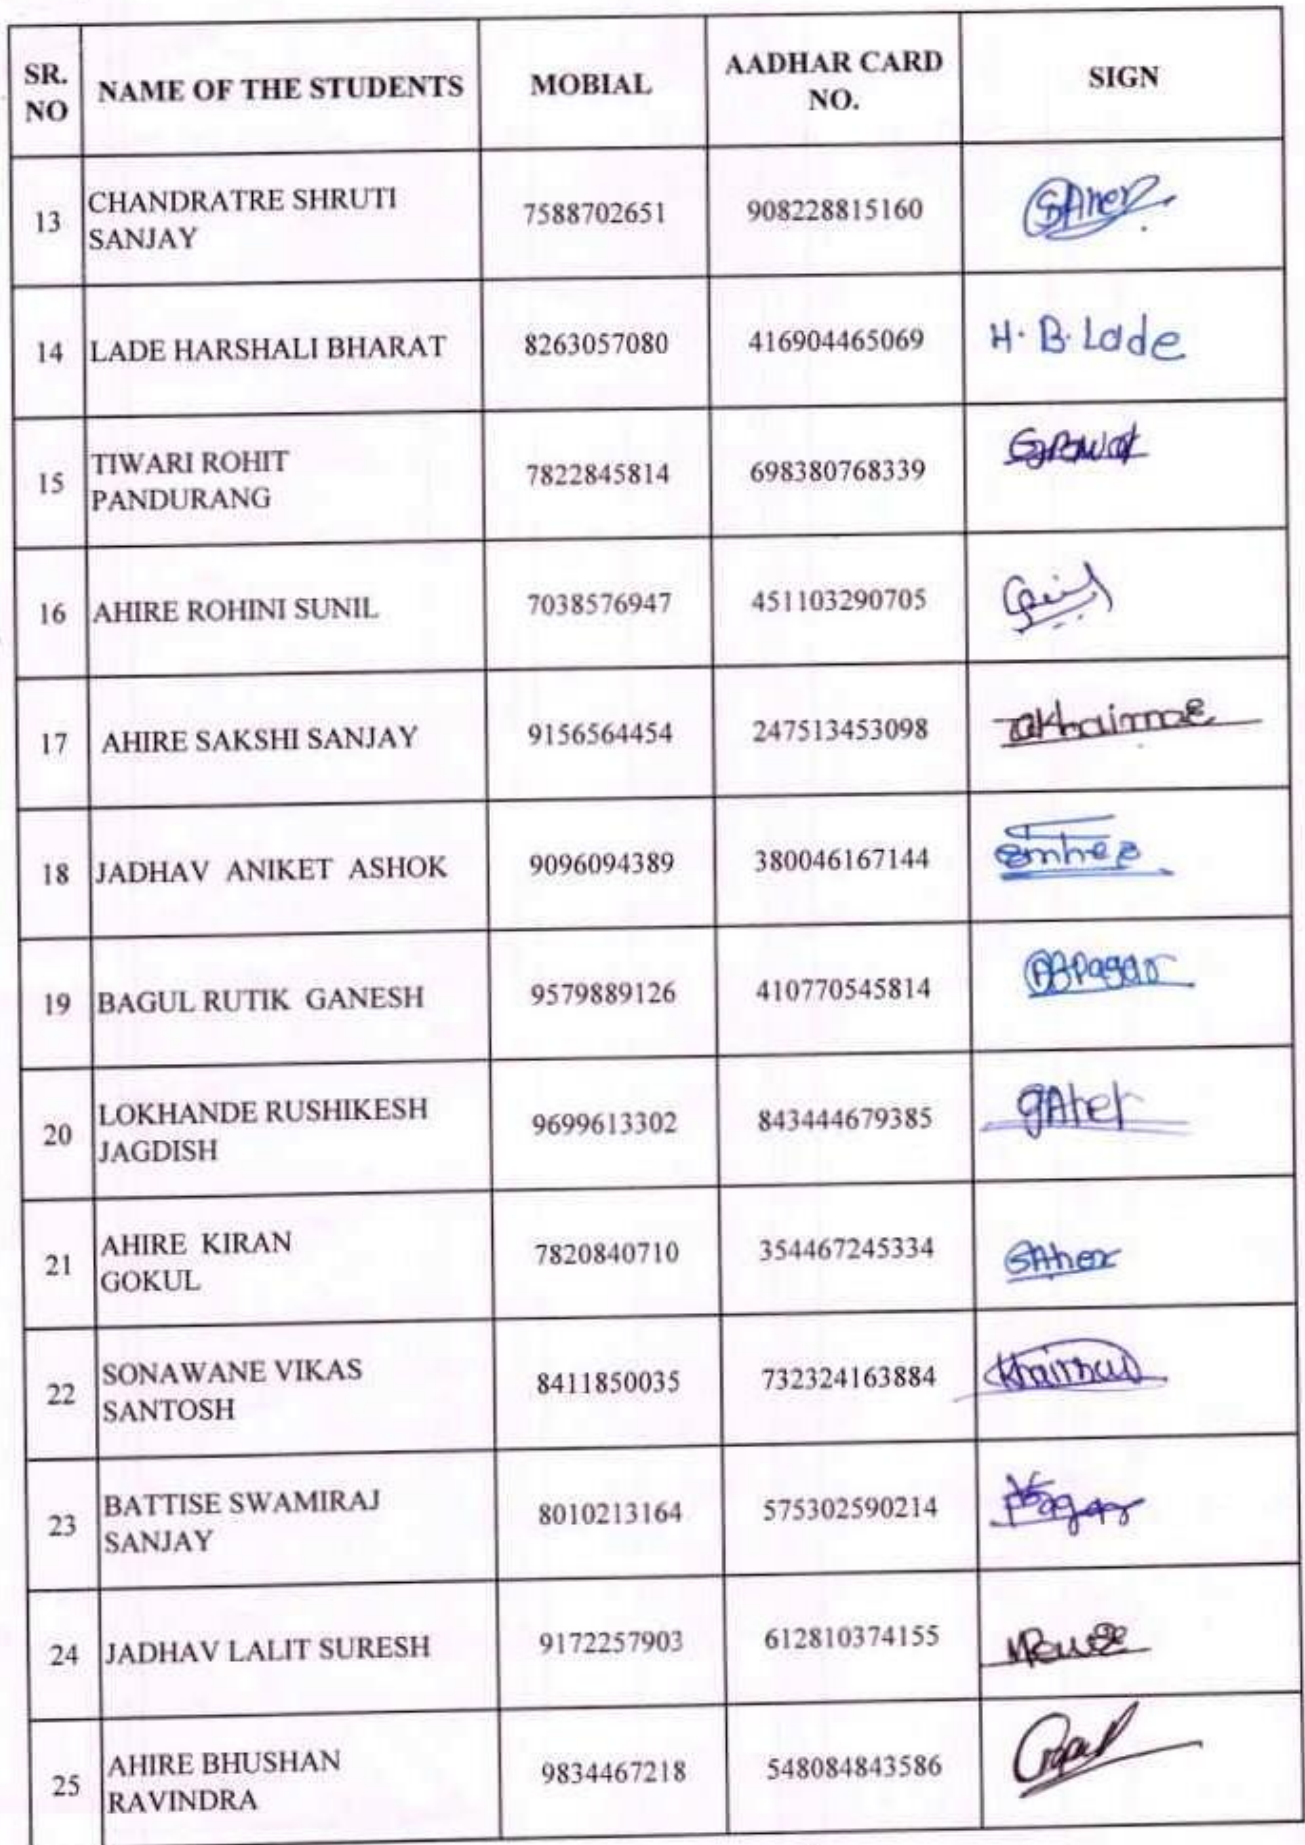 SR. NO NAME OF THE STUDENTS MOBIAL AADHAR CARD NO. SIGN
13 CHANDRATRE SHRUTI 7588702651 908228815160
SANJAY
14 LADE HARSHALI BHARAT 8263057080 416904465069 H. B. Lade
15 TIWARI ROHIT 7822845814 698380768339
PANDURANG
16 AHIRE ROHINI SUNIL 7038576947 451103290705
17 AHIRE SAKSHI SANJAY 9156564454 247513453098
18 JADHAV ANIKET ASHOK 9096094389 380046167144
19 BAGUL RUTIK GANESH 9579889126 410770545814
20 LOKHANDE RUSHIKESH 9699613302 843444679385
JAGDISH
21 AHIRE KIRAN 7820840710 354467245334
GOKUL
22 SONAWANE VIKAS 8411850035 732324163884
SANTOSH
23 BATTISE SWAMIRAJ 8010213164 575302590214
SANJAY
24 JADHAV LALIT SURESH 9172257903 612810374155
25 AHIRE BHUSHAN 9834467218 548084843586
RAVINDRA